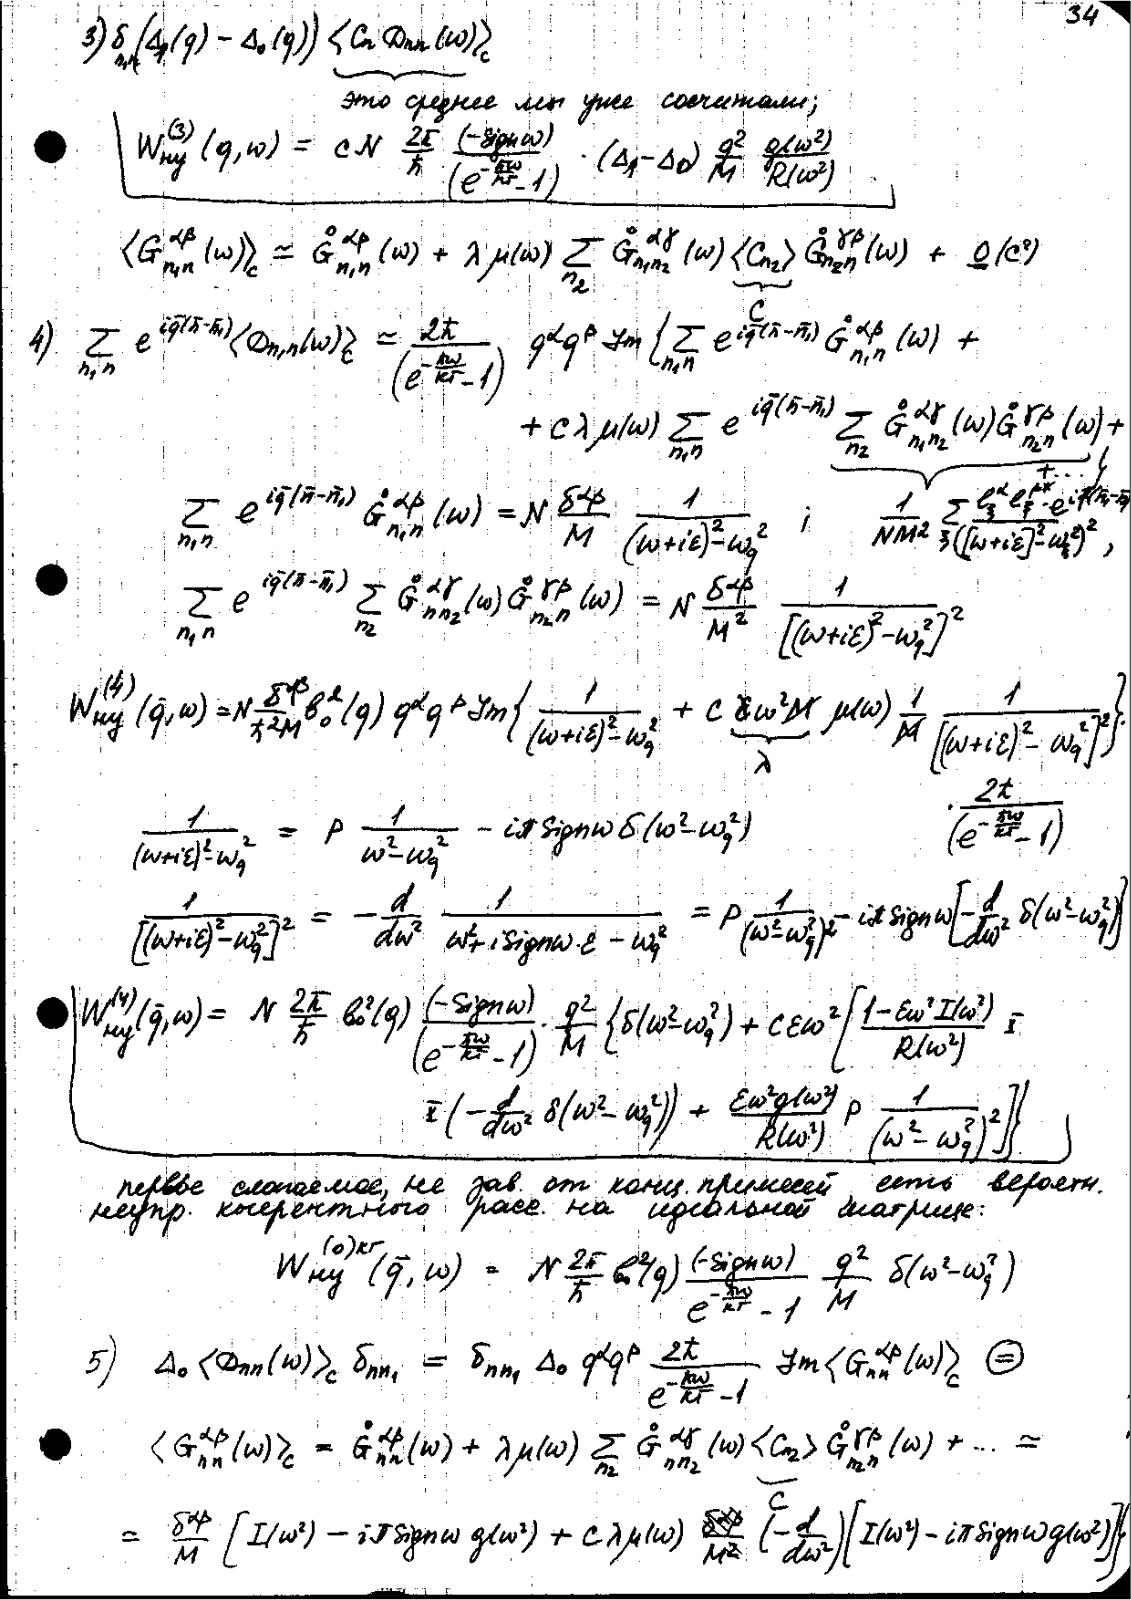 34
3) δ_{n₁n}(Δ₁(q) − Δ₀(q)) ⟨Cₙ Φₙₙ(ω)⟩_c
это среднее мы уже сосчитали;
W_{ну}^{(3)}(q,ω) = cN \frac{2π}{ħ} \frac{(−Signω)}{(e^{−ħω/kT}−1)} · (Δ₁−Δ₀) \frac{q²}{M} \frac{g(ω²)}{R(ω²)}
⟨G_{n₁n}^{αβ}(ω)⟩_c ≃ G°_{n₁n}^{αβ}(ω) + λμ(ω) Σ_{n₂} G°_{n₁n₂}^{αγ}(ω) ⟨C_{n₂}⟩ G°_{n₂n}^{γβ}(ω) + O(c²)
c
4) Σ_{n₁n} e^{iq̄(n̄−n̄₁)} ⟨Φ_{n₁n}(ω)⟩_c ≃ \frac{2ħ}{(e^{−ħω/kT}−1)} q^α q^β Im{Σ_{n₁n} e^{iq̄(n̄−n̄₁)} G°_{n₁n}^{αβ}(ω) +
+ cλμ(ω) Σ_{n₁n} e^{iq̄(n̄−n̄₁)} Σ_{n₂} G°_{n₁n₂}^{αγ}(ω) G°_{n₂n}^{γβ}(ω) + +...}
Σ_{n₁n} e^{iq̄(n̄−n̄₁)} G°_{n₁n}^{αβ}(ω) = N \frac{δ^{αβ}}{M} \frac{1}{(ω+iε)²−ω_q²} ; \frac{1}{NM²} Σ_ξ \frac{e_ξ^α e_ξ^{β*} · e^{iq̄(n̄₁−n̄)}}{([ω+iε]²−ω_ξ²)²},
Σ_{n₁n} e^{iq̄(n̄−n̄₁)} Σ_{n₂} G°_{nn₂}^{αγ}(ω) G°_{n₂n}^{γβ}(ω) = N \frac{δ^{αβ}}{M²} \frac{1}{[(ω+iε)²−ω_q²]²}
W_{ну}^{(4)}(q̄,ω) = N \frac{δ^{αβ}}{ħ²M} b₀²(q) q^α q^β Im{\frac{1}{(ω+iε)²−ω_q²} + c εω²M μ(ω) \frac{1}{M} \frac{1}{[(ω+iε)²−ω_q²]²}}·
λ
\frac{1}{(ω+iε)²−ω_q²} = P \frac{1}{ω²−ω_q²} − iπ Signω δ(ω²−ω_q²) · \frac{2ħ}{(e^{−ħω/kT}−1)}
\frac{1}{[(ω+iε)²−ω_q²]²} = −\frac{d}{dω²} \frac{1}{ω²+iSignω·ε−ω_q²} = P \frac{1}{(ω²−ω_q²)²} − iπ Signω[−\frac{d}{dω²} δ(ω²−ω_q²)]
W_{ну}^{(4)}(q̄,ω) = N \frac{2π}{ħ} b₀²(q) \frac{(−Signω)}{(e^{−ħω/kT}−1)} · \frac{q²}{M} {δ(ω²−ω_q²) + cεω² [\frac{1−εω²I(ω²)}{R(ω²)} x
x (−\frac{d}{dω²} δ(ω²−ω_q²)) + \frac{εω²g(ω²)}{R(ω²)} P \frac{1}{(ω²−ω_q²)²}]}
первое слагаемое, не зав. от конц. примесей, есть вероятн.
неупр. когерентного расс. на идеальной матрице:
W_{ну}^{(0)кг}(q̄,ω) = N \frac{2π}{ħ} b₀²(q) \frac{(−Signω)}{e^{−ħω/kT}−1} \frac{q²}{M} δ(ω²−ω_q²)
5) Δ₀⟨Φₙₙ(ω)⟩_c δ_{nn₁} = δ_{nn₁} Δ₀ q^α q^β \frac{2ħ}{e^{−ħω/kT}−1} Im⟨G_{nn}^{αβ}(ω)⟩_c ⊜
⟨G_{nn}^{αβ}(ω)⟩_c = G°_{nn}^{αβ}(ω) + λμ(ω) Σ_{n₂} G°_{nn₂}^{αγ}(ω) ⟨C_{n₂}⟩ G°_{n₂n}^{γβ}(ω) + ... ≃
c
= \frac{δ^{αβ}}{M} [I(ω²) − iπ Signω g(ω²) + cλμ(ω) \frac{δ^{αβ}}{M²} (−\frac{d}{dω²}) [I(ω²) − iπ Signω g(ω²)]}